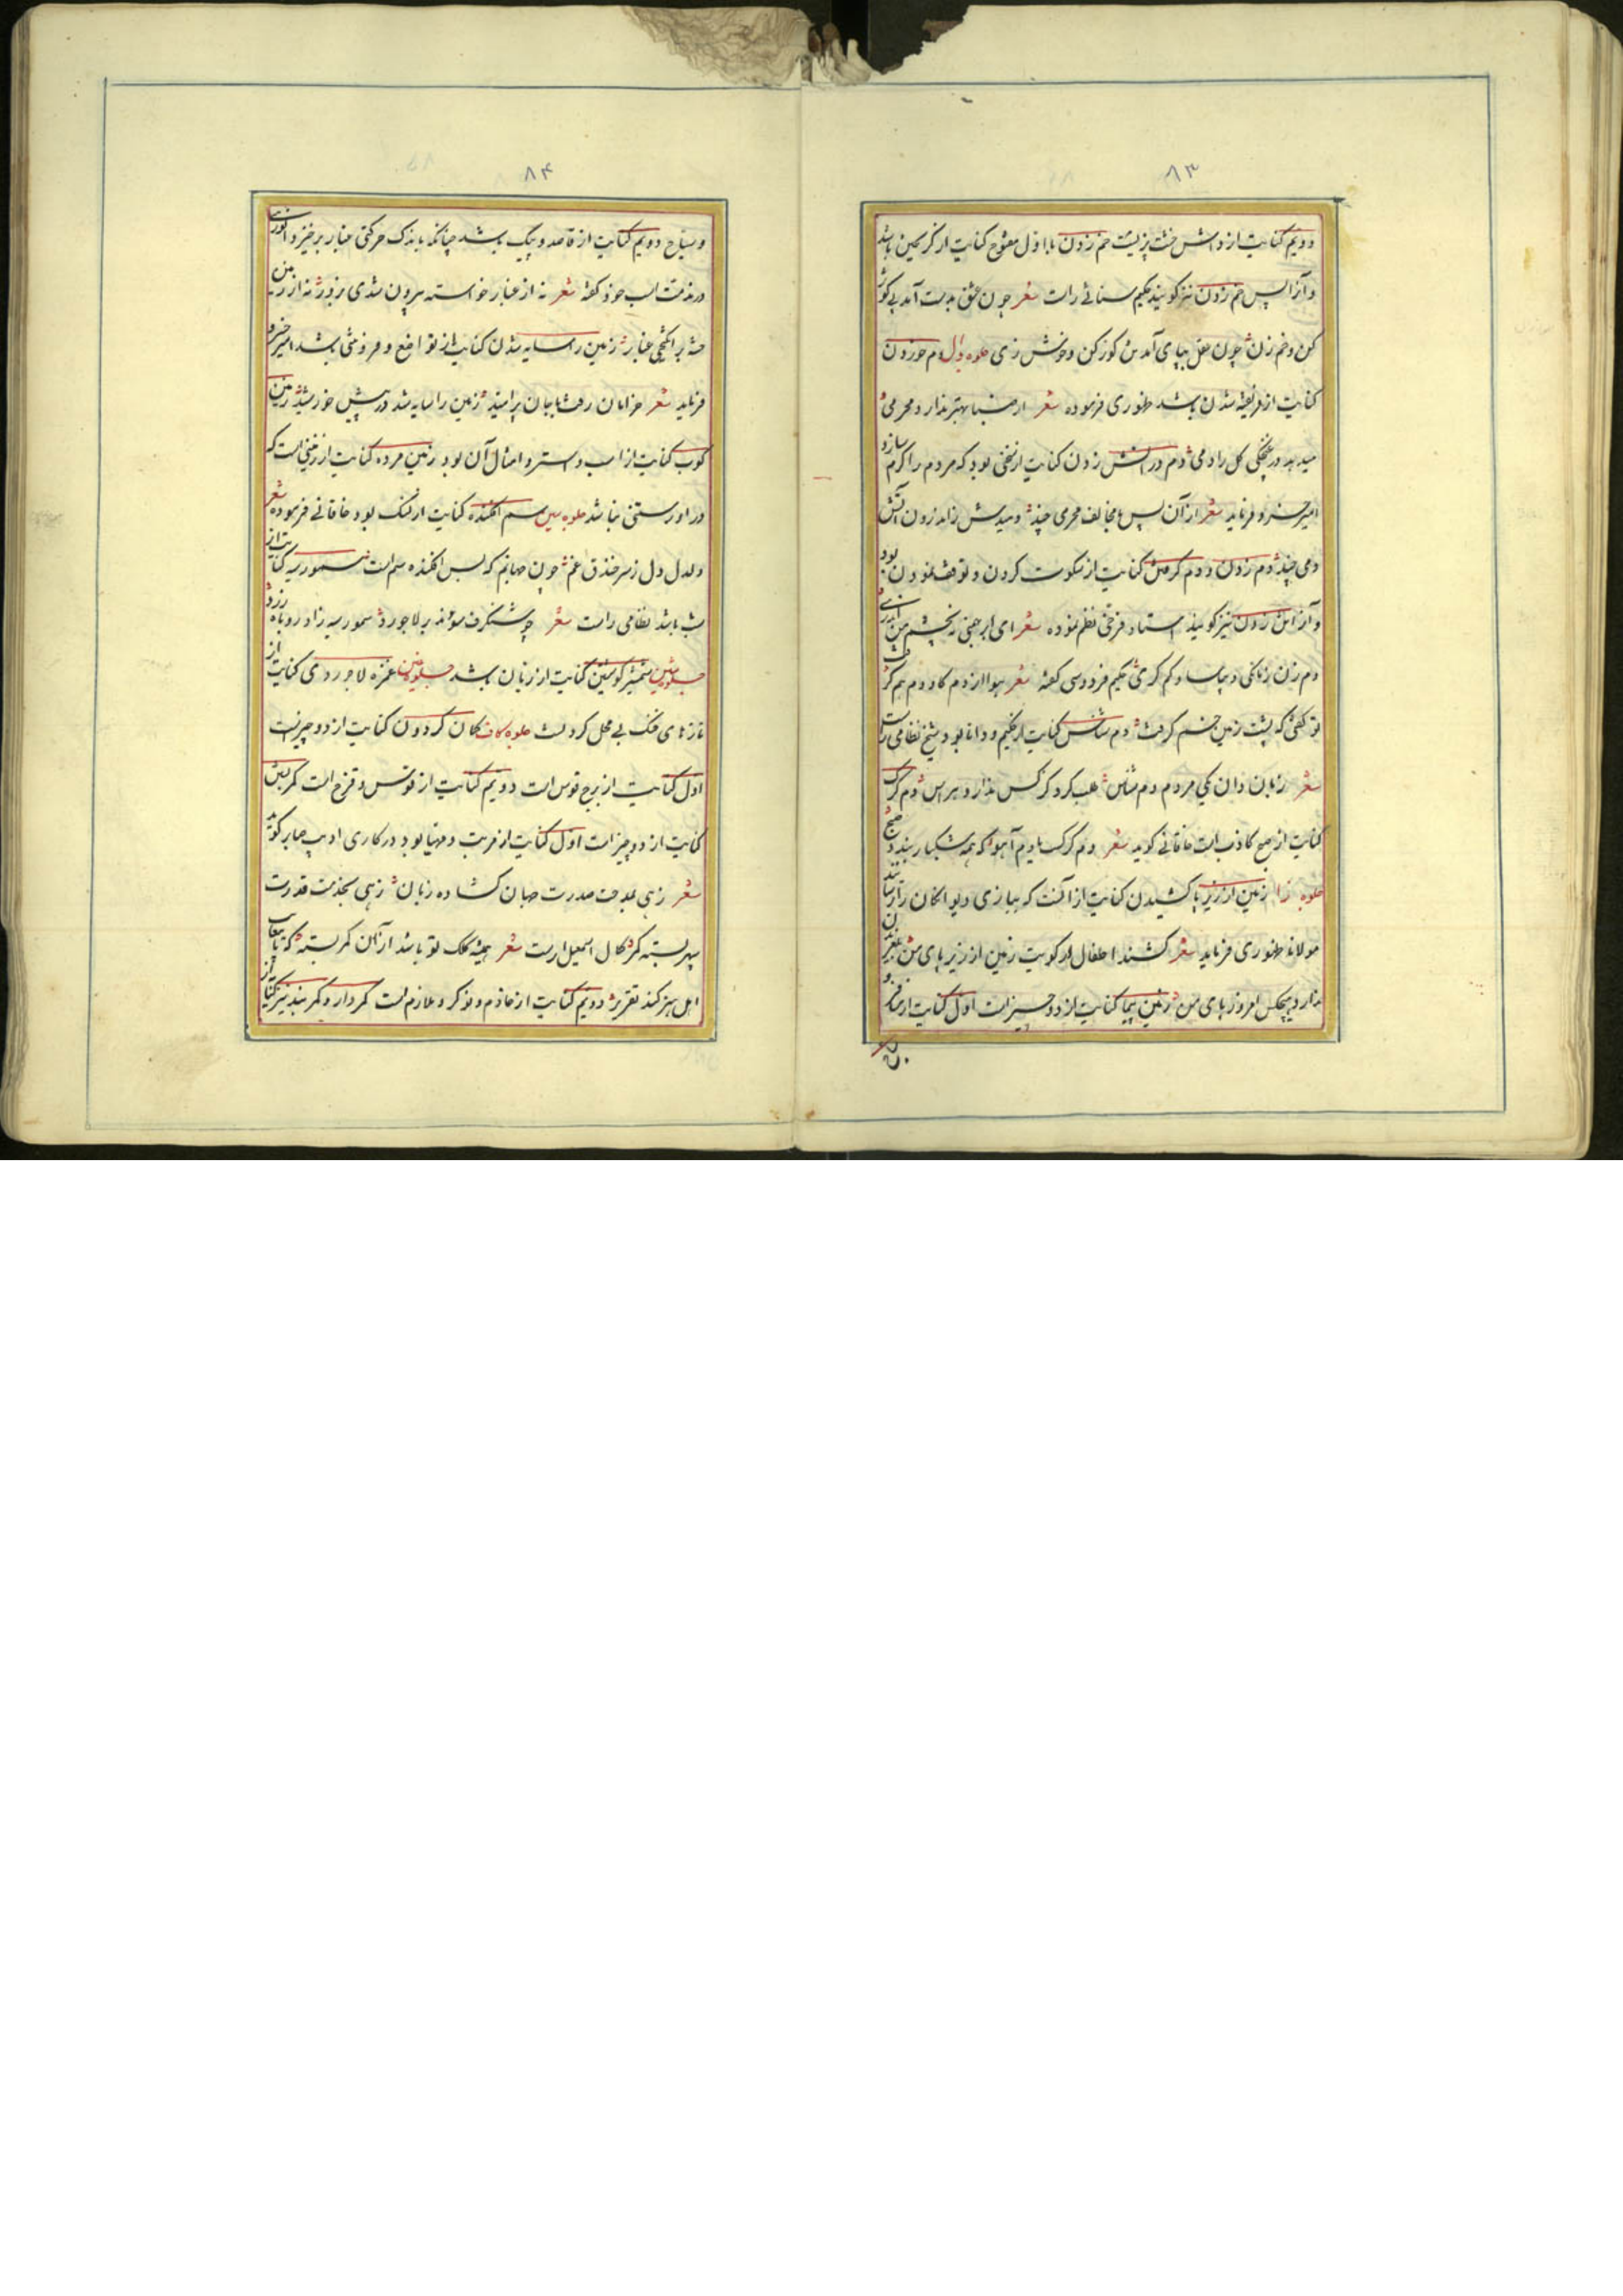 ۸۳
دویم کنایت از داش خشت پزیست خم زدن با اول مفتوح کنایت از گریختن باشد
و آنرا پس خم زدن نیز گویند حکیم سنائی راست شعر چون عشق بدست آمد پی کور
کن و خم زن چون عقل بپای آمد کور کن و خوش زی جلوه دال دم خوردن
کنایت از فریفته شدن باشد ظهوری فرموده شعر بهتر ندارد محرمی
میدهد در غنچگی گل را دمی دم در زدن کنایت از بود که مردم را گرم سازد
امیر خسرو فرماید شعر از آن پس با مخالف محرمی چند زدن آتش
دمی چند دم زدن و دم گرفتن کنایت از سکوت کردن و توقف نمودن بود
و آنرا نیز گویند استاد فرخی نظم نموده شعر ای ابر بهمنی نه بچشم من اندری
دم زن زمانکی و بیاسا و کم گری حکیم فردوسی گفته شعر هوا از دم گاودم هم گرفت
تو گفتی که پشت زمین خم گرفت دم شناس کنایت از حکیم و دانا بود شیخ نظامی راست
شعر زبان دان یکی مردم دم شناس طلب کرد کز کس ندارد هراس دم گرگ
کنایت از صبح کاذبست خاقانی گوید شعر دم گرگست یا دم آهو که همه مشکبار بندد صبح
جلوه زا زمین از زیر پا کشیدن کنایت از آنست که ببازی دیوانگان را ترسانند
مولانا ظهوری فرماید شعر کشند اطفال کویت زمین از زیر پای من
ندارد هیچکس امروز پای من زمین پیما کنایت از دو چیز است اول کنایت از مسافر و
۸۴
و سیاح دویم کنایت از قاصد و پیک باشد چنانکه باندک حرکتی غبار برخیزد انوری
در مذمت اسب خود گفته شعر نه از غبار خاسته بیرون شدی بزور نه از زمین
خسته برانگیختی غبار زمین را سایه شدن کنایت از تواضع و فروتنی باشد امیر خسرو
فرماید شعر خرامان رفت با جان پر امید زمین را سایه شد در پیش خورشید زمین
کوب کنایت از اسب و استر و امثال آن بود زمین مرده کنایت از زمینی است که
در او رستنی نباشد جلوه سین سم افکنده کنایت از لنگ بود خاقانی فرموده شعر
دلدل دل ز سر خندق غم چون جهانم که بس افکنده سم است سمور سیه کنایت از
شب باشد نظامی راست شعر چو شنگرف سودند بر لاجورد سمور سیه زاد روباه زرد
جلوه شین شمشیر گوشتین کنایت از زبان باشد جلوه غین غمزه لاجوردی کنایت از
نازهای خنک بی محل کردنست جلوه کاف کمان گردون کنایت از دو چیزست
اول کنایت از برج قوس است دویم کنایت از قوس و قزح است کمر بستن
کنایت از دو چیز است اول کنایت از مرتب و مهیا بود در کاری ادیب صابر گوید
شعر زهی بمدحت صدرت جهان گشاده زبان زهی بخدمت قدرت
سپهر بسته کمر کمال اسمعیل راست شعر همیشه کلک تو باشد از آن کمر بسته که تا معانی
اهل هنر کند تقریر دویم کنایت از خادم و نوکر و ملازم است کمردار و کمربند نیز کنایت از